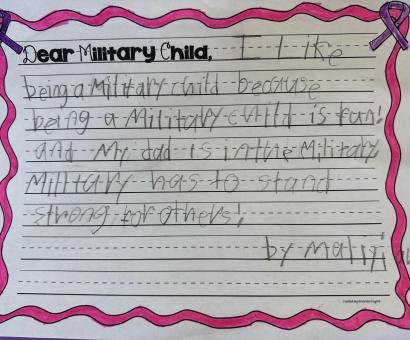 Dear Military Child, I like
being a Military child because
being a Military child is fun!
and My dad is in the Military
Military has to stand
strong for others!
by